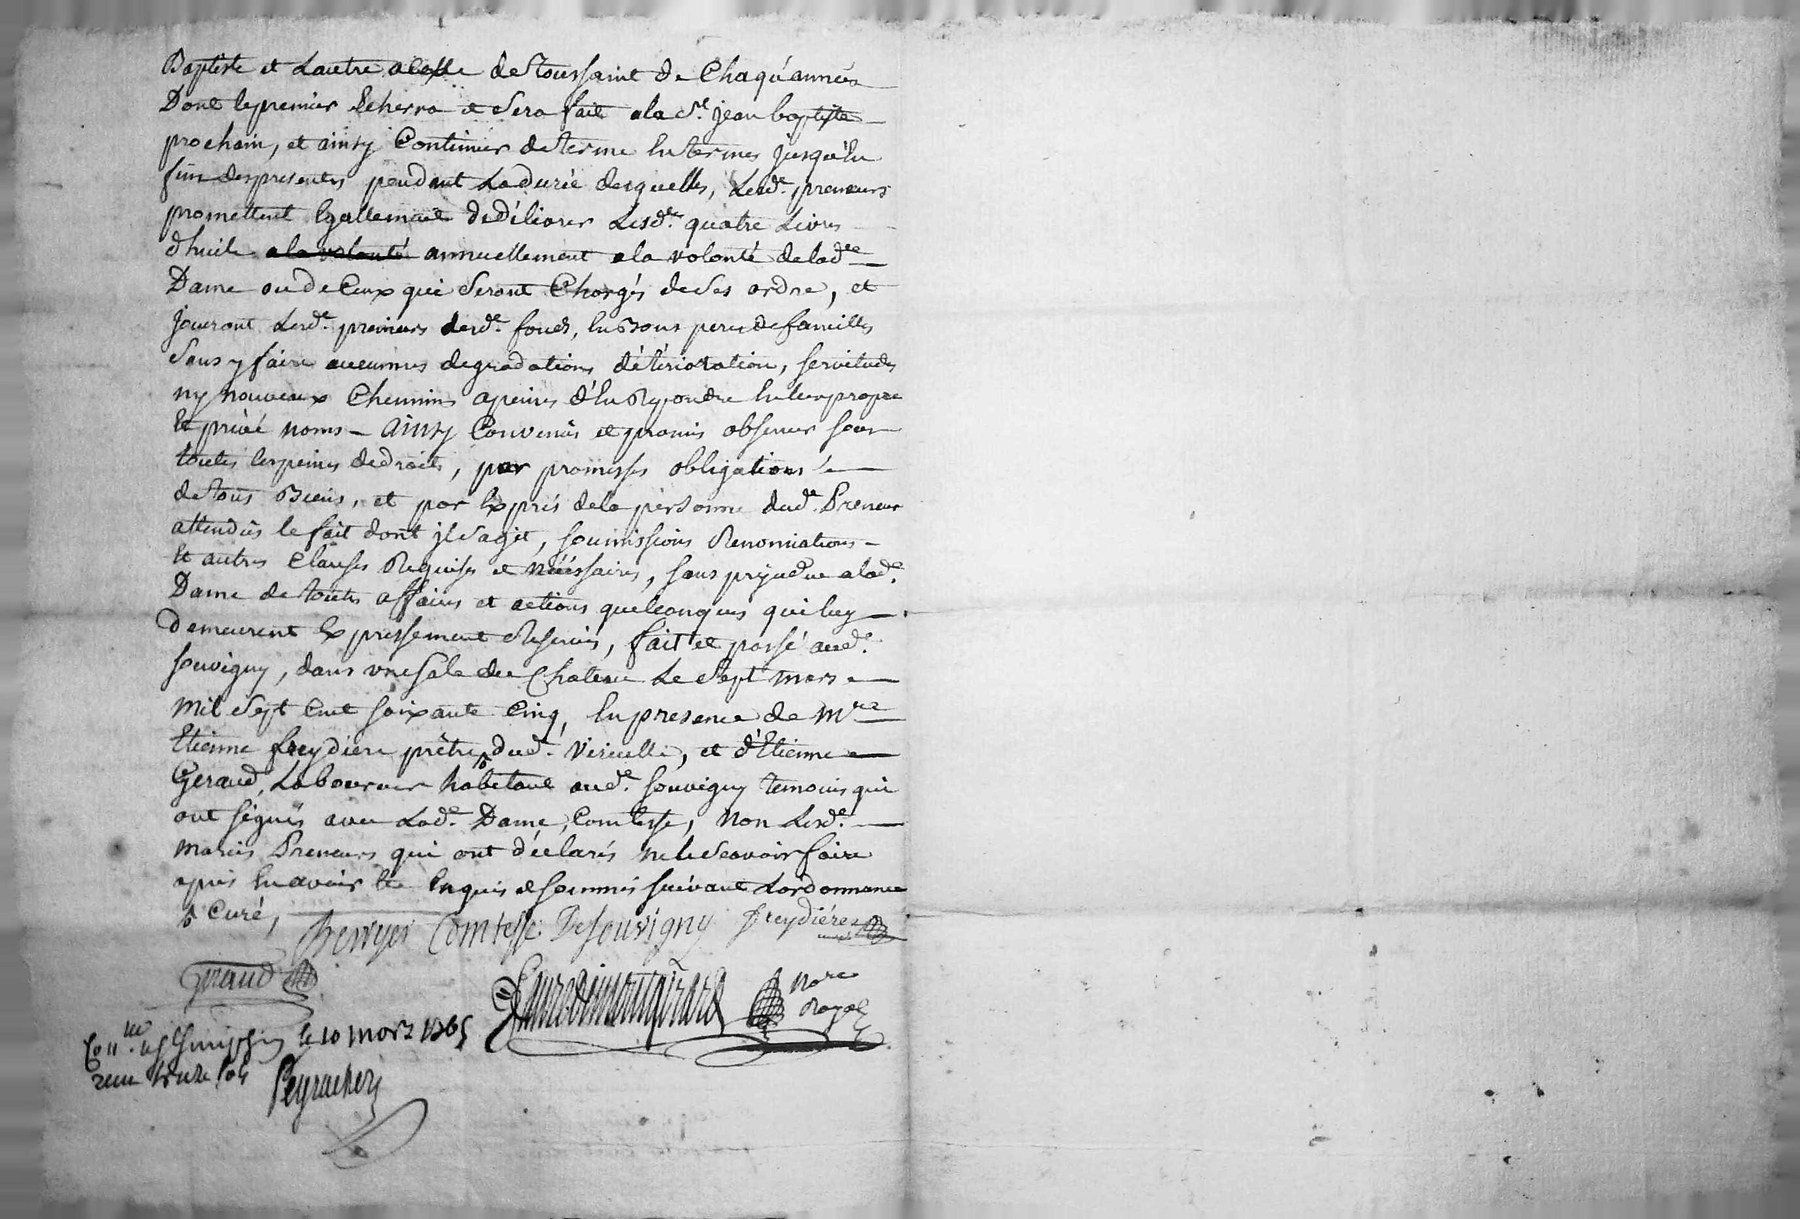 Baptiste et Lautre a celle de toussaint de Chaqu'année
Dont le premier Echerra et Sera fait a la St. jean baptiste
prochain, et ainsy Continuer de terme En termes jusqu'En
fin des presentes pendant La durée desquelles, Lesde. preneurs
promettent Egallement de délivrer Lesde. quatre Livres
d'huile a la volonté annuellement a la volonté de lade.
Dame ou de Ceux qui Seront Chargés de Ses ordre, et
jouiront Lesde. preneurs desde. fonds, En Bons peres de familles
Sans y faire aucunnes degradations détérioration, servitudes
ny nouveaux Chemins a peines d'En Repondre En leur propre
Et privé noms - Ainsy Convenus et promis observer sous
toutes les peines de droits, par promesses obligations
de tous Biens, et par Exprés de la personne dude. Preneur
attendus le fait dont jl S'agit, soumissions Renonciations
Et autres Clauses Requises et nécéssaires, sans prejudice a lade.
Dame de toutes affaires et actions quelconques qui luy
demeurent Expressement Reservés, fait et passé aude.
souvigny, dans une Sale du Chateau Le Sept mars
mil Sept Cent soixante Cinq, En presence de Mre
Etienne freydiere prêtre dud. Vercelle, et d'Etienne
Geraud, Laboureur habitant aude. souvigny temoins qui
ont signés avec Lade. Dame, Comtesse, Non Lesde.
mariés Preneurs qui ont déclarés ne le Scavoir faire
aprés En avoir Eté Enquis et sommés suivant Lordonnance
Curé,
Comtesse De souvigny freydiéres
Geraud
Nore
Royal
le 10 mars 1765
recu treize sols
Peyrachery